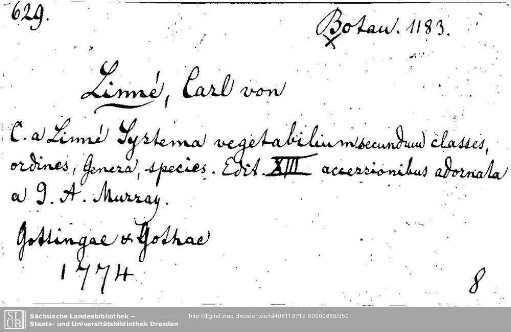 629.
Botan. 1183.
Linné, Carl von
C. a Linné Systema vegetabilium secundum classes,
ordines, genera, species. Edit. XIII accessionibus adornata
a J. A. Murray.
Gottingae & Gothae
1774
8
Sächsische Landesbibliothek –
Staats- und Universitätsbibliothek Dresden